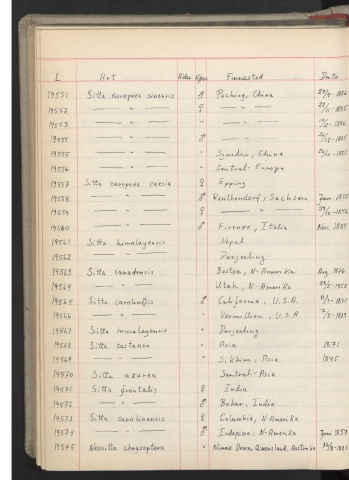 L Art Alder Kjønn Finnested Dato
19551 Sitta europaea sinensis ♂ Peching, China
19552 — " — ♀ — " —
19553 — " — " — " —
19554 — " — ♂ — " —
19555 — " — " China
19556 — " — " Sentral-Europa
19557 Sitta europaea caesia ♀ Epping
19558 — " — ♂ Renthendorf, Sachsen Jan. 1855
19559 — " — ♀ — " —
19560 — " — ♂ Firenze, Italia Nov. 1884
19561 Sitta himalayensis Nepal
19562 — " — Darjeeling
19563 Sitta canadensis " Boston, N-Amerika Aug. 1876
19564 — " — " Utah, N-Amerika
19565 Sitta ♂ California, U.S.A.
19566 — " — " Vermillion, U.S.A
19567 Sitta himalayensis " Darjeeling
19568 Sitta castanea " Asia 1871
19569 — " — " Sikhim, Asia 1845
19570 Sitta azurea Sentral-Asia
19571 Sitta frontalis ♀ India
19572 — " — ♂ Bahar, India
19573 Sitta carolinensis ♀ Columbia, N-Amerika
19574 — " — ♂ N-Amerika
19575 Neositta chrysoptera " Down, Queensland, Australia